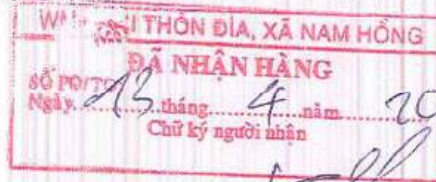 WM I THÔN ĐÌA, XÃ NAM HỒNG
ĐÃ NHẬN HÀNG
SỐ PO/
Ngày 13 tháng 4 năm 20
Chữ ký người nhận